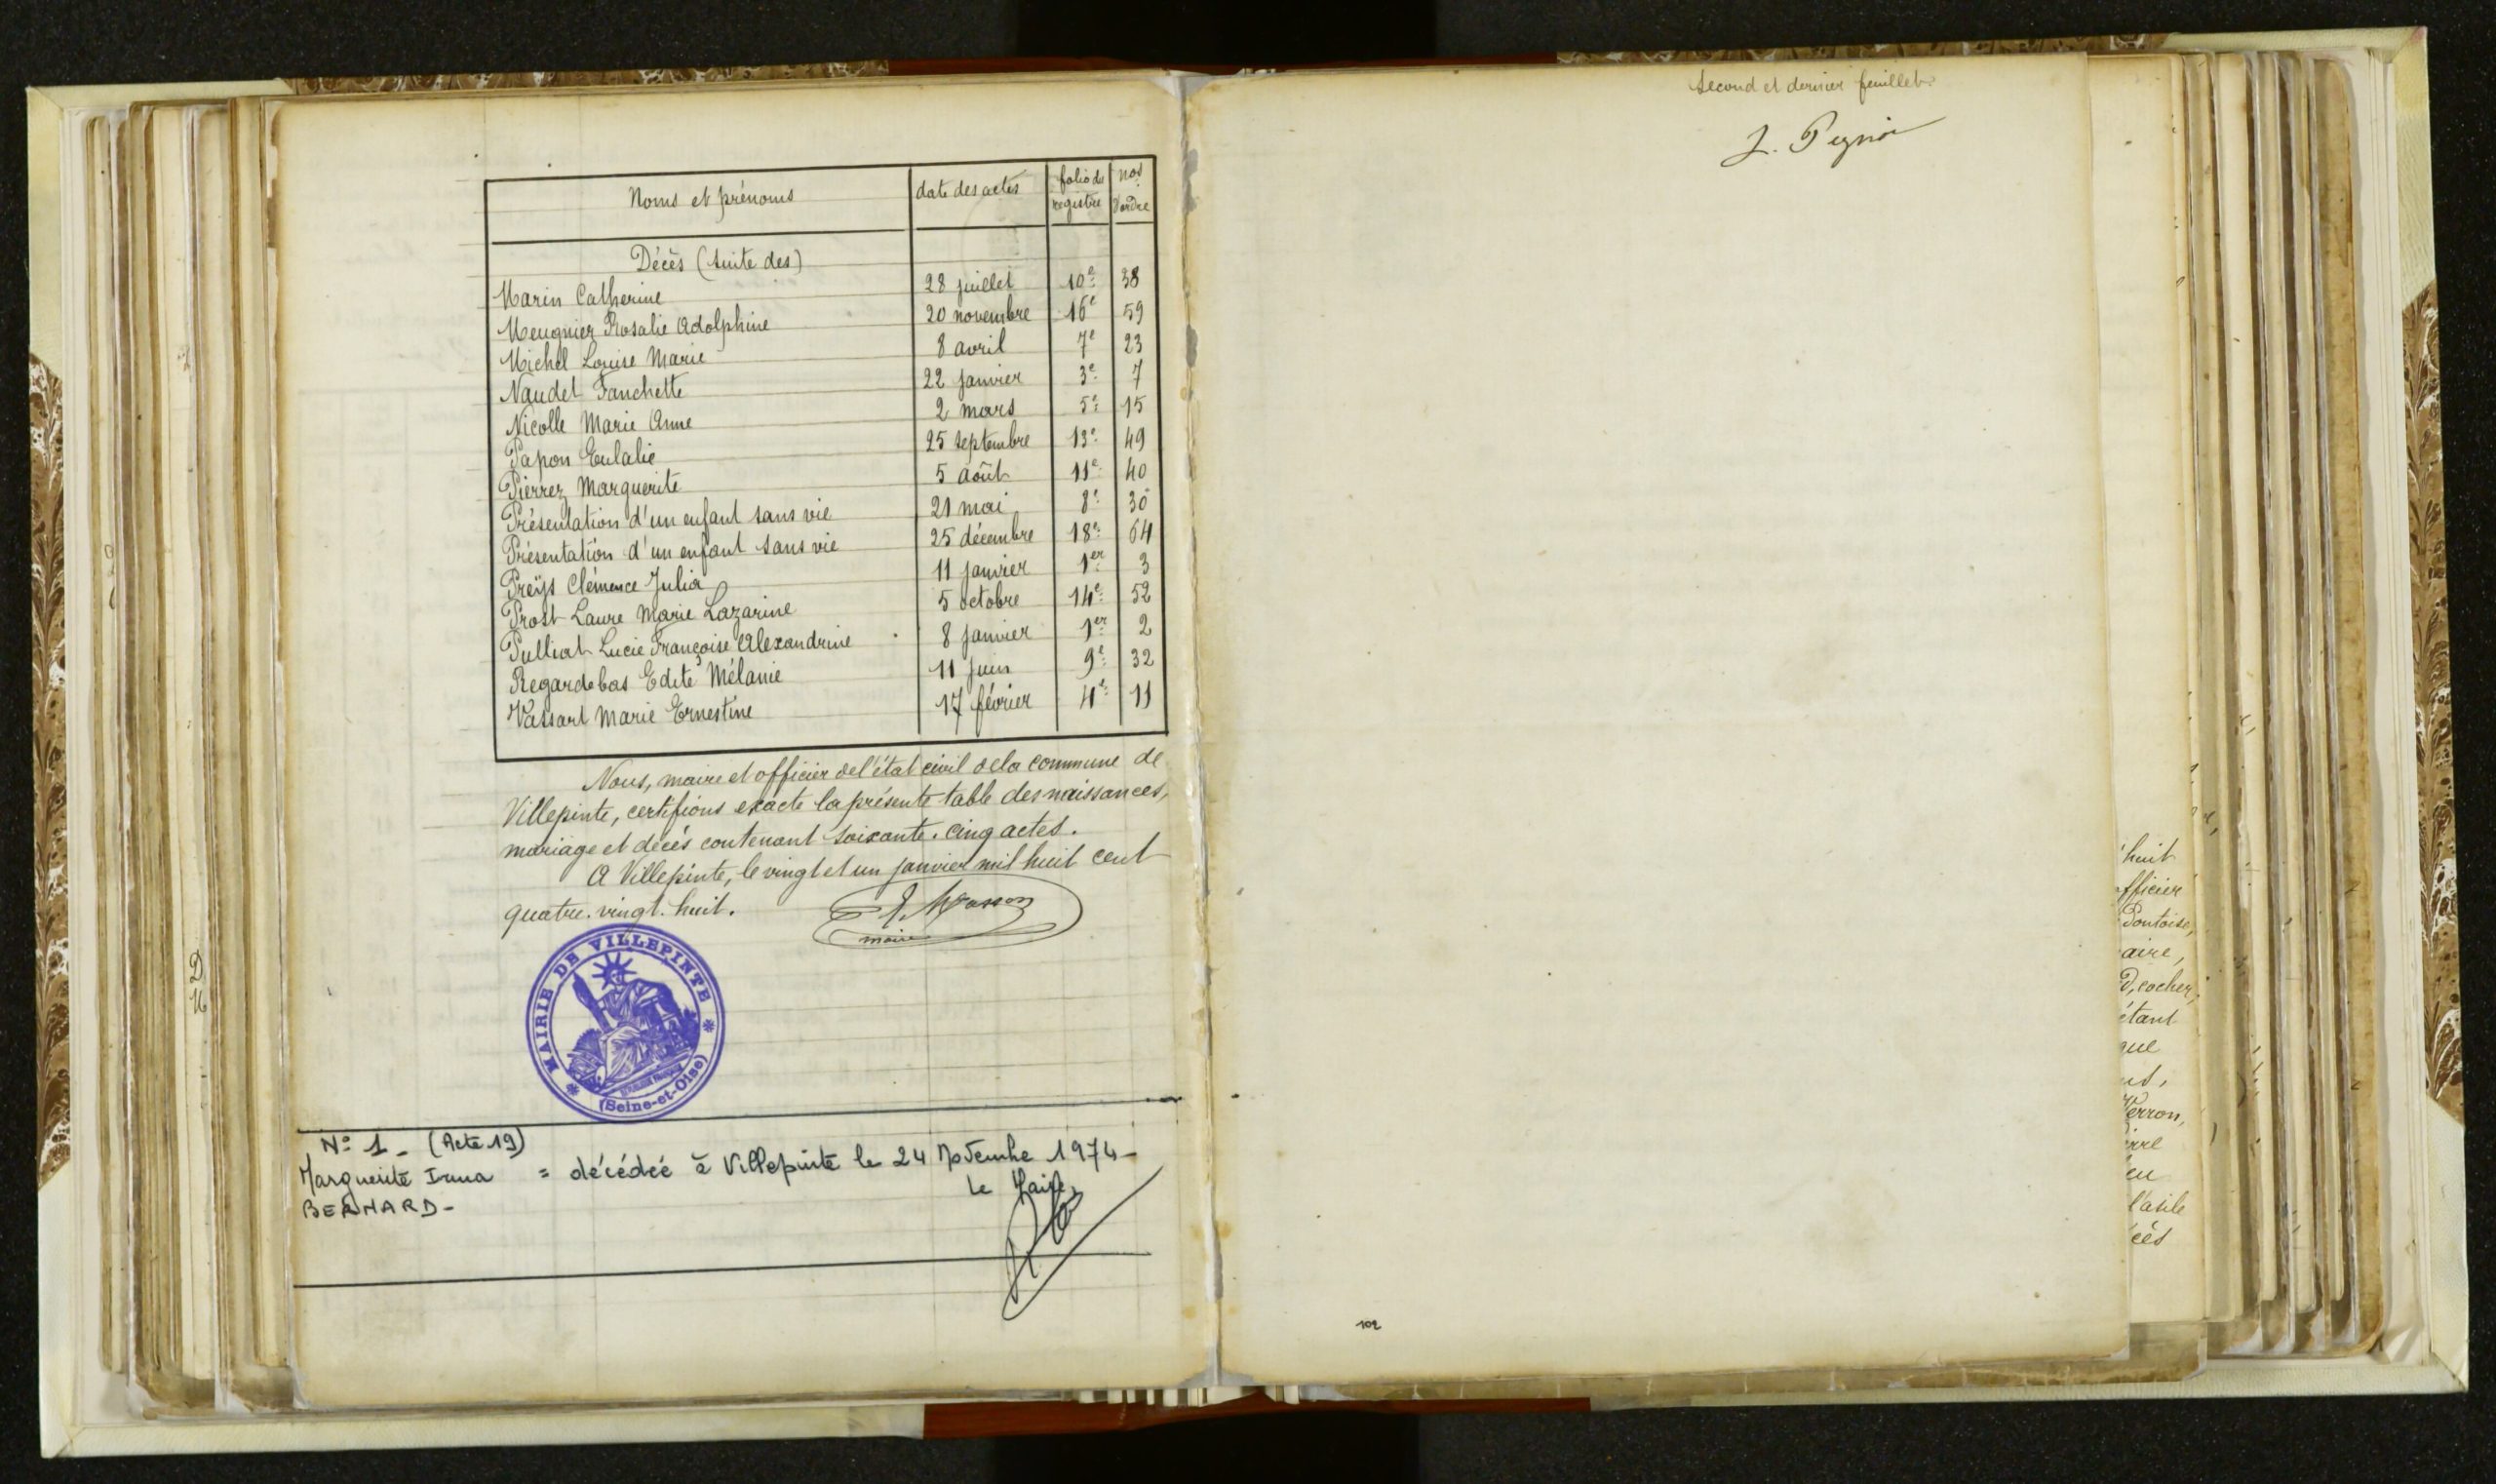 Noms et prénoms | date des actes | folio du registre | nos d'ordre
Décès (suite des)
Marin Catherine | 28 juillet | 10e | 38
Meugnier Rosalie Adolphine | 20 novembre | 16e | 59
Michel Louise Marie | 8 avril | 7e | 23
Naudet Fanchette | 22 janvier | 3e | 7
Nicolle Marie Anne | 2 mars | 5e | 15
Papon Eulalie | 25 septembre | 13e | 49
Pierrez Marguerite | 5 août | 11e | 40
Présentation d'un enfant sans vie | 21 mai | 8e | 30
Présentation d'un enfant sans vie | 25 décembre | 18e | 64
Preÿs Clémence Julia | 11 janvier | 1er | 3
Prost Laure Marie Lazarine | 5 octobre | 14e | 52
Pulliat Lucie Françoise Alexandrine | 8 janvier | 1er | 2
Regardebas Edite Mélanie | 11 juin | 9e | 32
Vassart Marie Ernestine | 17 février | 4e | 11
Nous, maire et officier de l'état civil de la commune de
Villepinte, certifions exacte la présente table des naissances,
mariage et décès contenant soixante-cinq actes.
A Villepinte, le vingt et un janvier mil huit cent
quatre-vingt-huit.
maire
MAIRIE DE VILLEPINTE
(Seine-et-Oise)
N° 1 - (Acte 19)
Marguerite Irma = décédée à Villepinte le 24 Novembre 1974 -
BERNARD - Le Maire,
Second et dernier feuillet.
102
huit
officier
Pontoise,
aire,
D, cocher,
étant
que
Verron,
en
l'asile
cès